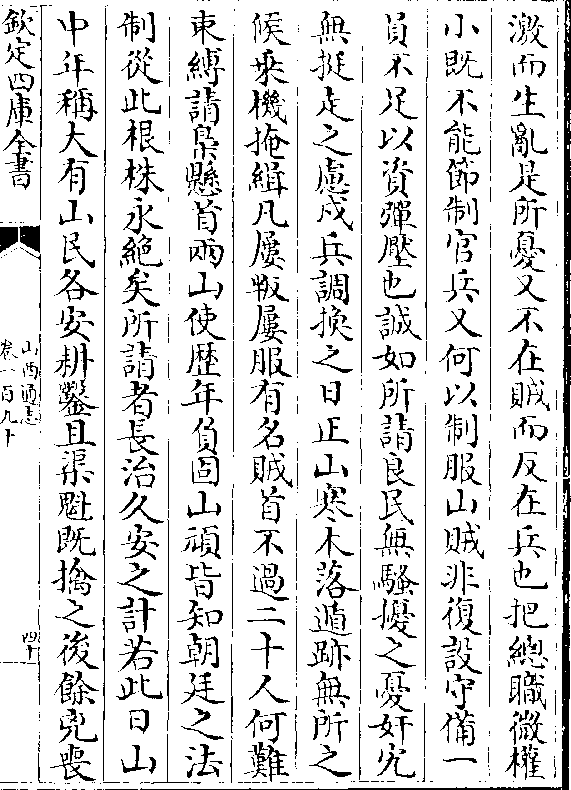 激而生亂是所憂又不在賊而反在兵也把總職微權
小既不能節制官兵又何以制服山賊非復設守備一
員不足以資彈壓也誠如所請良民無騷擾之憂奸宄
無挺走之慮戍兵調換之日正山寒木落遁跡無所之
候乗機掩緝凡屢叛屢服有名賊首不過二十人何難
束縛請梟懸首兩山使歴年負固山頑皆知朝廷之法
制從此根株永絶矣所請者長治久安之計若此日山
中年稱大有山民各安耕鑿且渠魁既擒之後餘兇喪
欽定四庫全書
山西通志
卷一百九十
四十